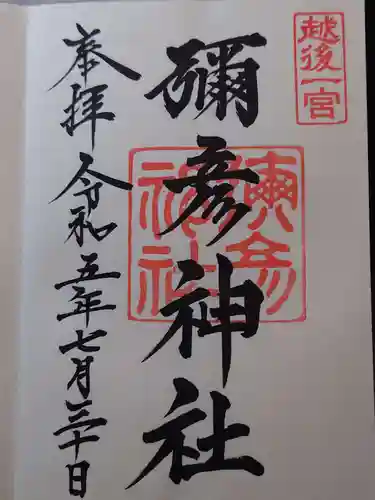 越後一宮
彌彦神社
彌彦
神社
奉拝 令和五年七月三十日